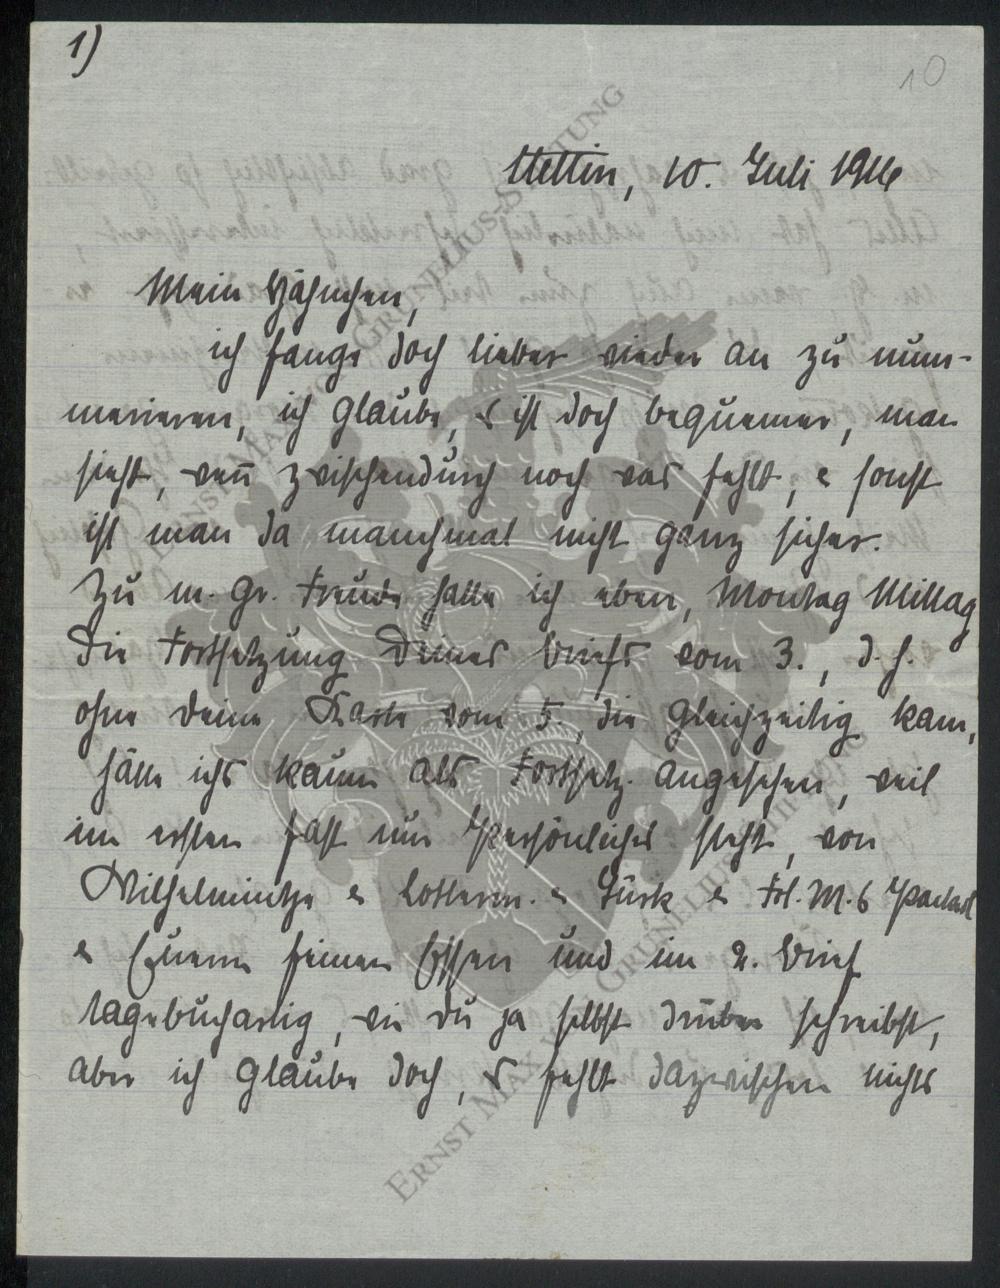 1)
10
Stettin, 10. Juli 1916
Mein Hähnchen,
ich fange doch lieber wieder an zu num-
merieren, ich glaube, es ist doch bequemer, man
sieht, wenn̄ zwischendurch noch was fehlt, & sonst
ist man da manchmal nicht ganz sicher.
Zu m. gr. Freude hatte ich eben, Montag Mittag
die Fortsetzung Deines Briefs vom 3., d. h.
ohne Deine Karte vom 5., die gleichzeitig kam,
hätte ichs kaum als Fortsetz. angesehen, weil
im ersten fast nur Persönliches steht, von
& & Türk & Frl. M. &
& Euerm feinen Essen und im 2. Brief
tagebuchartig, wie Du ja selbst drüber schreibst,
aber ich glaube doch, es fehlt dazwischen nichts
ERNST MAX VON GRUNELIUS-STIFTUNG
ERNST MAX VON GRUNELIUS-STIFTUNG